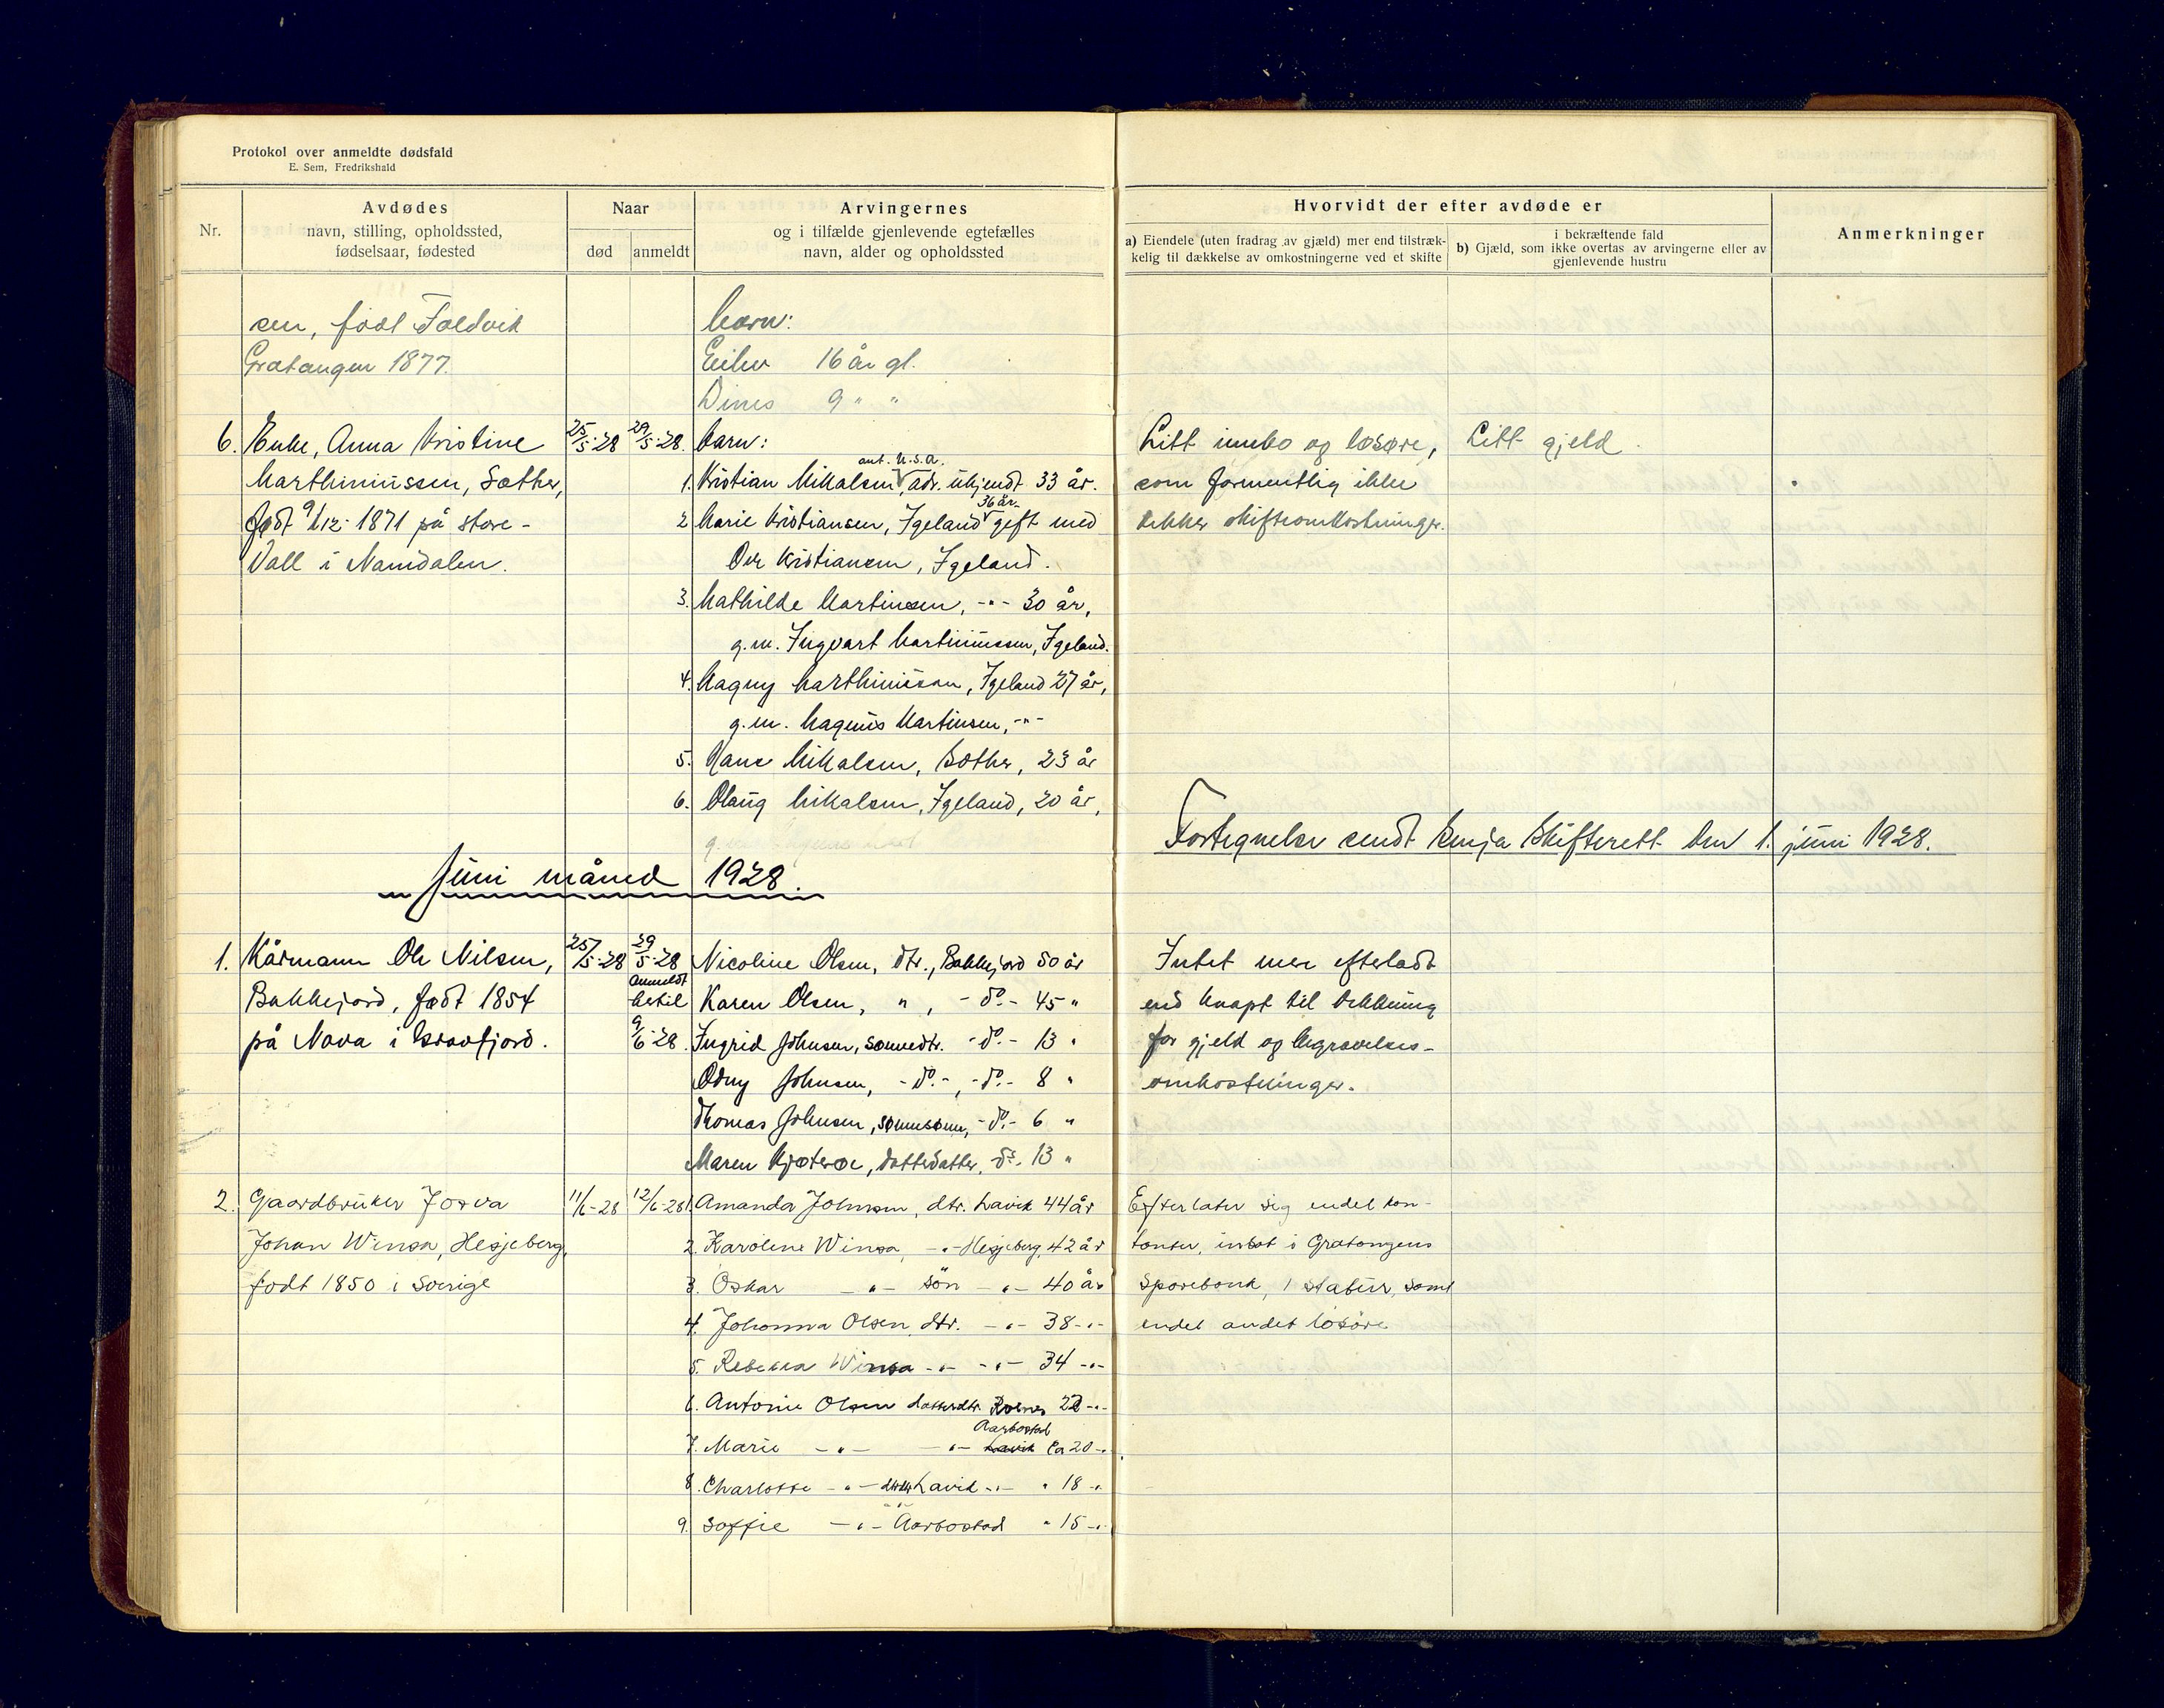 Protokol over anmeldte dødsfald
E. Sem, Fredrikshald
Nr.
Avdødes
navn, stilling, opholdssted,
fødselsaar, fødested
Naar
død
anmeldt
Arvingernes
og i tilfælde gjenlevende egtefælles
navn, alder og opholdssted
Hvorvidt der efter avdøde er
a) Eiendele (uten fradrag av gjæld) mer end tilstræk-
kelig til dækkelse av omkostningerne ved et skifte
i bekræftende fald
b) Gjæld, som ikke overtas av arvingerne eller av
gjenlevende hustru
Anmerkninger
sen, født Foldvik
Gratangen 1877.
barn:
Eilev 16 år gl.
9 " "
6. Enke, Anna Kristine
Marthinussen, Sæther,
født 9/12-1871 på store-
Vall i Namdalen.
25/5-28
29/5-28.
barn:
1. Kristian Mikalsen, ant. U.S.A. adr. ukjendt 33 år.
2 Marie Kristiansen, Igeland 36 år gift med
Ole Kristiansen, Igeland.
3. Mathilde Martinsen, -"- 30 år,
g.m. Ingvart Martinussen, Igeland.
4. Magny Marthinissen, Igeland 27 år,
g.m. Magnus Martinsen, -"-
5. Hans Mikalsen, Sæther, 23 år
6. Olaug Mikalsen, Igeland, 20 år,
Litt innbo og løsøre,
som formentlig ikke
dekker skifteomkostninger.
Litt gjeld.
Fortegnelse sendt Senja Skifterett den 1. juni 1928.
Juni måned 1928.
1. Kårmann Ole Nilsen,
Bakkejord, født 1854
på Nova i Gravfjord.
25/5-28
29/5-28
anmeldt
betil
9/6-28.
Nicoline Olsen, dtr., Bakkejord 50 år
Karen Olsen, " , -do.- 45 "
Ingrid Johnsen, sønnedtr. -do.- 13 "
Odny Johnsen, -do.-, -do.- 8 "
Thomas Johnsen, sønnesønn, -do.- 6 "
Maren Kjøterøe, datterdatter, do. 13 "
Intet mer efterladt
end knapt til dekning
for gjeld og begravelses-
omkostninger.
2. Gaardbruker Josva
Johan Winsa, Hesjeberg,
født 1850 i Sverige
11/6-28
12/6-28
1. Amanda Johnsen, dtr. Lavik 44 år
2. Karoline Winsa, -"- Hesjeberg, 42 år
3. Oskar -"- sön -"- 40 år
4. Johanna Olsen, dtr. -"- 38 -"-
5. Rebekka Winsa -"- -"- 34 -"-
6. Antonie Olsen datterdtr. Roknes 22 -"-
7. Marie -"- -"- Aarbostad Lavik Ca 20 -"-
8. Charlotte -"- Lavik -"- " 18 -"-
9. Soffie -"- Aarbostad " 15 -"-
Efterlater sig endel kon-
tanter, insat i Gratangens
Sparebank, 1 stabur, samt
endel andet lösöre